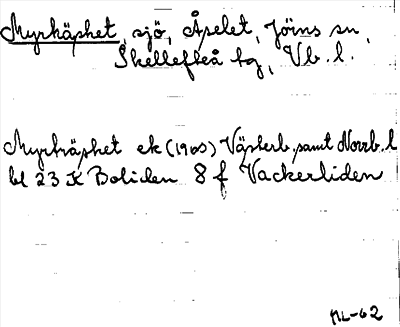 Myrkäsket, sjö, Åselet, Jörns sn,
Skellefteå tg, Vb. l.
Myrträsket ek (1905) Västerb. samt Norrb. l
bl 23 K Boliden 8 f Vackerliden
ML-62